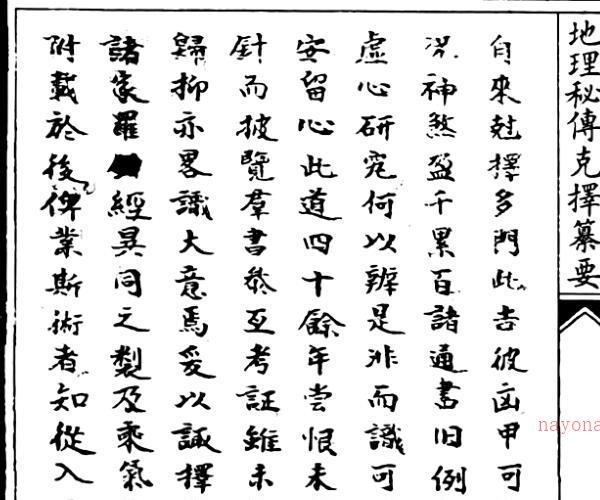 地理秘傳克擇纂要
自來尅擇多門此吉彼凶甲可
況神煞盈千累百諸通書旧例
虛心研究何以辨是非而識可
安留心此道四十餘年嘗恨未
針而披覽羣書叅互考証雖未
歸抑亦畧識大意焉爰以諏擇
諸家羅經異同之製及乘氣
附載於後俾業斯術者知從入
nayona